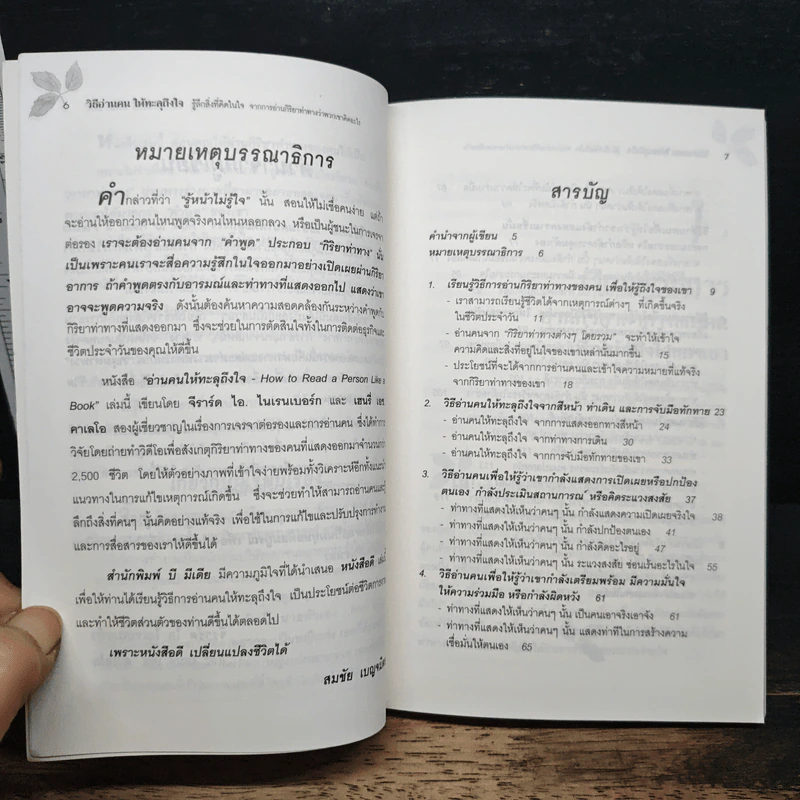 6 วิธีอ่านคน ให้ทะลุถึงใจ รู้ลึกสิ่งที่คิดในใจ จากการอ่านกิริยาท่าทางว่าพวกเขาคิดอะไร
หมายเหตุบรรณาธิการ
คำกล่าวที่ว่า “รู้หน้าไม่รู้ใจ” นั้น สอนให้ไม่เชื่อคนง่าย แต่ถ้า
จะอ่านให้ออกว่าคนไหนพูดจริงคนไหนหลอกลวง หรือเป็นผู้ชนะในการเจรจา
ต่อรอง เราจะต้องอ่านคนจาก “คำพูด” ประกอบ “กิริยาท่าทาง” นั่น
เป็นเพราะคนเราจะสื่อความรู้สึกในใจออกมาอย่างเปิดเผยผ่านกิริยา
อาการ ถ้าคำพูดตรงกับอารมณ์และท่าทางที่แสดงออกไป แสดงว่าเขา
อาจจะพูดความจริง ดังนั้นต้องค้นหาความสอดคล้องกันระหว่างคำพูดกับ
กิริยาท่าทางที่แสดงออกมา ซึ่งจะช่วยในการตัดสินใจทั้งในการติดต่อธุรกิจและ
ชีวิตประจำวันของคุณให้ดีขึ้น
หนังสือ “อ่านคนให้ทะลุถึงใจ - How to Read a Person Like a
Book” เล่มนี้ เขียนโดย จีราร์ด ไอ. ไนเรนเบอร์ก และ เฮนรี่ เอช
คาเลโอ สองผู้เชี่ยวชาญในเรื่องการเจรจาต่อรองและการอ่านคน ซึ่งได้ทำการ
วิจัยโดยถ่ายทำวิดีโอเพื่อสังเกตุกิริยาท่าทางของคนที่แสดงออกมาจำนวนกว่า
2,500 ชีวิต โดยให้ตัวอย่างภาพที่เข้าใจง่ายพร้อมทั้งวิเคราะห์อีกทั้งแนะนำ
แนวทางในการแก้ไขเหตุการณ์เกิดขึ้น ซึ่งจะช่วยทำให้สามารถอ่านคนและรู้
ลึกถึงสิ่งที่คนๆ นั้นคิดอย่างแท้จริง เพื่อใช้ในการแก้ไขและปรับปรุงการทำงาน
และการสื่อสารของเราให้ดีขึ้นได้
สำนักพิมพ์ บี มีเดีย มีความภูมิใจที่ได้นำเสนอ หนังสือดี
เพื่อให้ท่านได้เรียนรู้วิธีการอ่านคนให้ทะลุถึงใจ เป็นประโยชน์ต่อชีวิตการงาน
และทำให้ชีวิตส่วนตัวของท่านดีขึ้นได้ตลอดไป
เพราะหนังสือดี เปลี่ยนแปลงชีวิตได้
สมชัย
7
สารบัญ
คำนำจากผู้เขียน 5
หมายเหตุบรรณาธิการ 6
1. เรียนรู้วิธีการอ่านกิริยาท่าทางของคน เพื่อให้รู้ถึงใจของเขา 9
- เราสามารถเรียนรู้ชีวิตได้จากเหตุการณ์ต่างๆ ที่เกิดขึ้นจริง
ในชีวิตประจำวัน 11
- อ่านคนจาก “กิริยาท่าทางต่างๆ โดยรวม” จะทำให้เข้าใจ
ความคิดและสิ่งที่อยู่ในใจของเขาเหล่านั้นมากขึ้น 15
- ประโยชน์ที่จะได้จากการอ่านคนและเข้าใจความหมายที่แท้จริง
จากกิริยาท่าทางของเขา 18
2. วิธีอ่านคนให้ทะลุถึงใจจากสีหน้า ท่าเดิน และการจับมือทักทาย 23
- อ่านคนให้ทะลุถึงใจ จากการแสดงออกทางสีหน้า 24
- อ่านคนให้ทะลุถึงใจ จากท่าทางการเดิน 30
- อ่านคนให้ทะลุถึงใจ จากการจับมือทักทายของเขา 33
3. วิธีอ่านคนเพื่อให้รู้ว่าเขากำลังแสดงการเปิดเผยหรือปกป้อง
ตนเอง กำลังประเมินสถานการณ์ หรือคิดระแวงสงสัย 37
- ท่าทางที่แสดงให้เห็นว่าคนๆ นั้น กำลังแสดงความเปิดเผยจริงใจ 38
- ท่าทางที่แสดงให้เห็นว่าคนๆ นั้น กำลังปกป้องตนเอง 41
- ท่าทางที่แสดงให้เห็นว่าคนๆ นั้น กำลังคิดอะไรอยู่ 47
- ท่าทางที่แสดงให้เห็นว่าคนๆ นั้น ระแวงสงสัย ซ่อนเร้นอะไรในใจ 55
4. วิธีอ่านคนเพื่อให้รู้ว่าเขากำลังเตรียมพร้อม มีความมั่นใจ
ให้ความร่วมมือ หรือกำลังผิดหวัง 61
- ท่าทางที่แสดงให้เห็นว่าคนๆ นั้น เป็นคนเอาจริงเอาจัง 61
- ท่าทางที่แสดงให้เห็นว่าคนๆ นั้น แสดงท่าทีในการสร้างความ
เชื่อมั่นให้ตนเอง 65